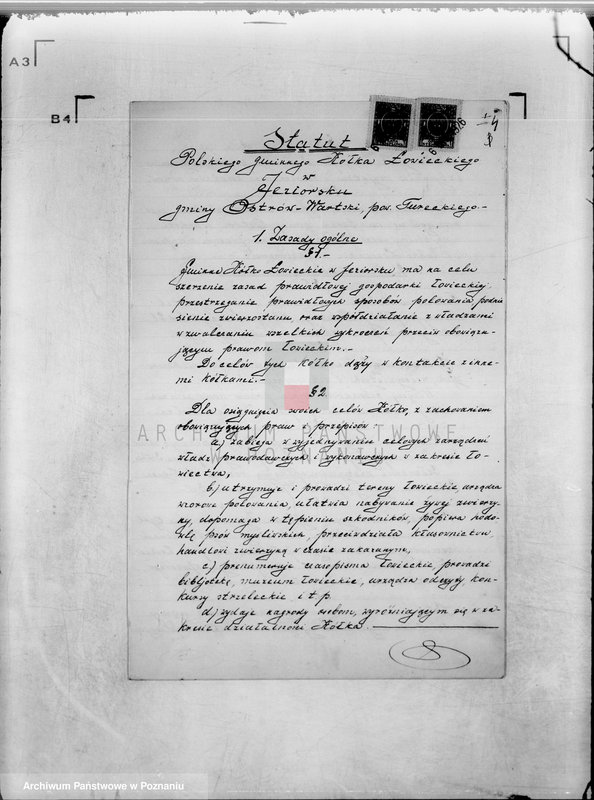 A3
B4
Statut
Polskiego Gminnego Kółka Łowieckiego
w
Jeziorsku
gminy Ostrów-Wartski, pow. Tureckiego.-
1. Zasady ogólne
§1.-
Gminne Kółko Łowieckie w Jeziorsku ma na celu
szerzenie zasad prawidłowej gospodarki łowieckiej,
przestrzeganie prawidłowych sposobów polowania, podnie
sienie zwierzostanu oraz współdziałanie z władzami
w zwalczaniu wszelkich wykroczeń przeciw obowiązu-
jącym prawom łowieckim.-
Do celów tych Kółko dąży w kontakcie z inne-
mi kółkami.-
§2
Dla osiągnięcia swoich celów Kółko, z zachowaniem
obowiązujących praw i przepisów:
ARCHIWUM PAŃSTWOWE
W POZNANIU
a) zabiega w zjednywaniu celowych zarządzeń
władz prawodawczych i wykonawczych w zakresie ło-
wiectwa,
b) utrzymuje i prowadzi tereny łowieckie, urządza
wzorowe polowania, ułatwia nabywanie żywej zwierzy-
ny, dopomaga w tępieniu szkodników, popiera hodo-
wlę psów myśliwskich, przeciwdziała kłusownictwu,
handlowi zwierzyną w czasie zakazanym,
c) prenumeruje czasopisma łowieckie, prowadzi
bibljotekę, muzeum łowieckie, urządza odczyty, kon-
kursy strzeleckie i t.p.
d) wydaje nagrody osobom, wyróżniającym się w za-
kresie działalności Kółka.
Archiwum Państwowe w Poznaniu